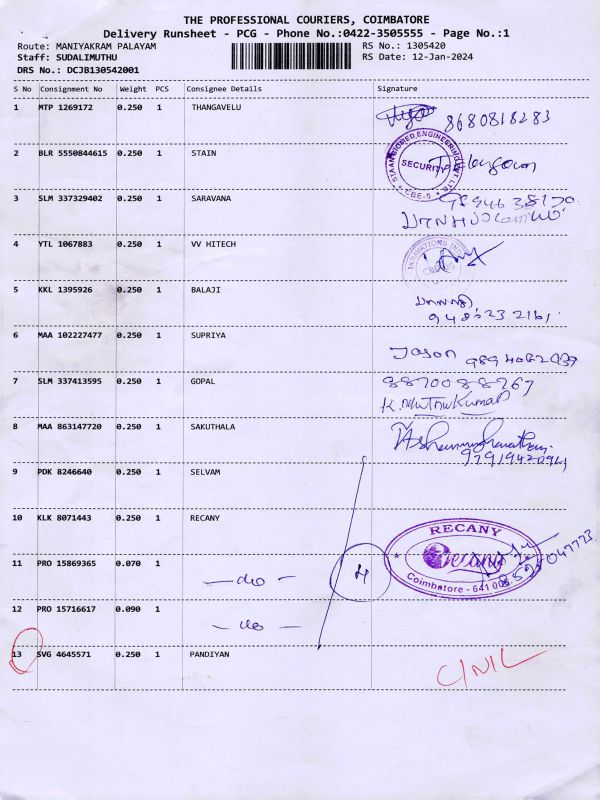 THE PROFESSIONAL COURIERS, COIMBATORE
Delivery Runsheet - PCG - Phone No.:0422-3505555 - Page No.:1
Route: MANIYAKRAM PALAYAM
RS No.: 1305420
Staff: SUDALIMUTHU
RS Date: 12-Jan-2024
DRS No.: DCJB130542001
S No Consignment No Weight PCS Consignee Details Signature
1 MTP 1269172 0.250 1 THANGAVELU 8680818283
2 BLR 5550844615 0.250 1 STAIN
SECURITY
CBE-5
3 SLM 337329402 0.250 1 SARAVANA
4 YTL 1067883 0.250 1 VV HITECH
5 KKL 1395926 0.250 1 BALAJI
6 MAA 102227477 0.250 1 SUPRIYA Jason
7 SLM 337413595 0.250 1 GOPAL 8870088767
8 MAA 863147720 0.250 1 SAKUTHALA
9 PDK 8246640 0.250 1 SELVAM
10 KLK 8071443 0.250 1 RECANY
RECANY
Recany
Coimbatore - 641 006.
11 PRO 15869365 0.070 1 —do—
4
12 PRO 15716617 0.090 1 —do—
13 SVG 4645571 0.250 1 PANDIYAN